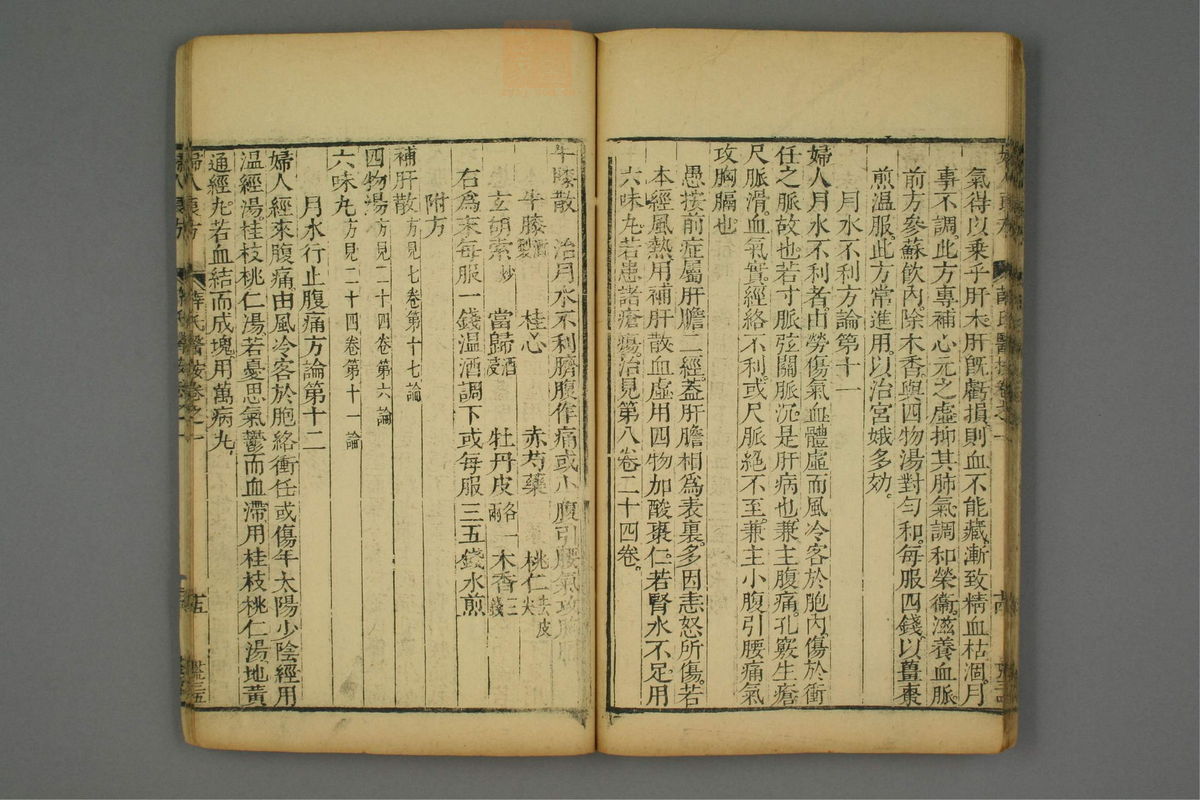 氣得以乘乎肝木肝旣虧損則血不能藏漸致精血枯涸月
事不調此方專補心元之虛抑其肺氣調和榮衞滋養血脈
前方參蘇飮內除木香與四物湯對勻和每服四錢以薑棗
煎溫服此方常進用以治宮娥多効
月水不利方論第十一
婦人月水不利者由勞傷氣血體虛而風冷客於胞內傷於衝
任之脈故也若寸脈弦關脈沉是肝病也兼主腹痛孔竅生瘡
尺脈滑血氣實經絡不利或尺脈絕不至兼主小腹引腰痛氣
攻胸膈也
愚按前症屬肝膽二經葢肝膽相爲表裏多因恚怒所傷若
本經風熱用補肝散血虛用四物加酸棗仁若腎水不足用
六味丸若患諸瘡瘍治見第八卷二十四卷
牛膝散 治月水不利臍腹作痛或小腹引腰氣攻胸
牛膝酒製 桂心 赤芍藥 桃仁去皮尖
玄胡索炒 當歸酒浸 牡丹皮各一兩 木香三錢
右爲末每服一錢溫酒調下或每服三五錢水煎
附方
補肝散方見七卷第十七論
四物湯方見二十四卷第六論
六味丸方見二十四卷第十一論
月水行止腹痛方論第十二
婦人經來腹痛由風冷客於胞絡衝任或傷年太陽少陰經用
溫經湯桂枝桃仁湯若憂思氣鬱而血滯用桂枝桃仁湯地黃
通經丸若血結而成塊用萬病丸
婦人良方 薛氏醫按卷之一 十五